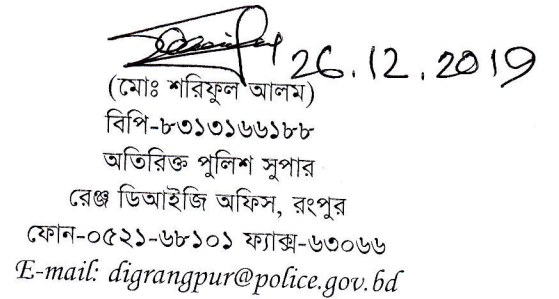 26.12.2019
(মোঃ শরিফুল আলম)
বিপি-৮৩১৩১৬৬১৮৮
অতিরিক্ত পুলিশ সুপার
রেঞ্জ ডিআইজি অফিস, রংপুর
ফোন-০৫২১-৬৮১০১ ফ্যাক্স-৬৩০৬৬
E-mail: digrangpur@police.gov.bd